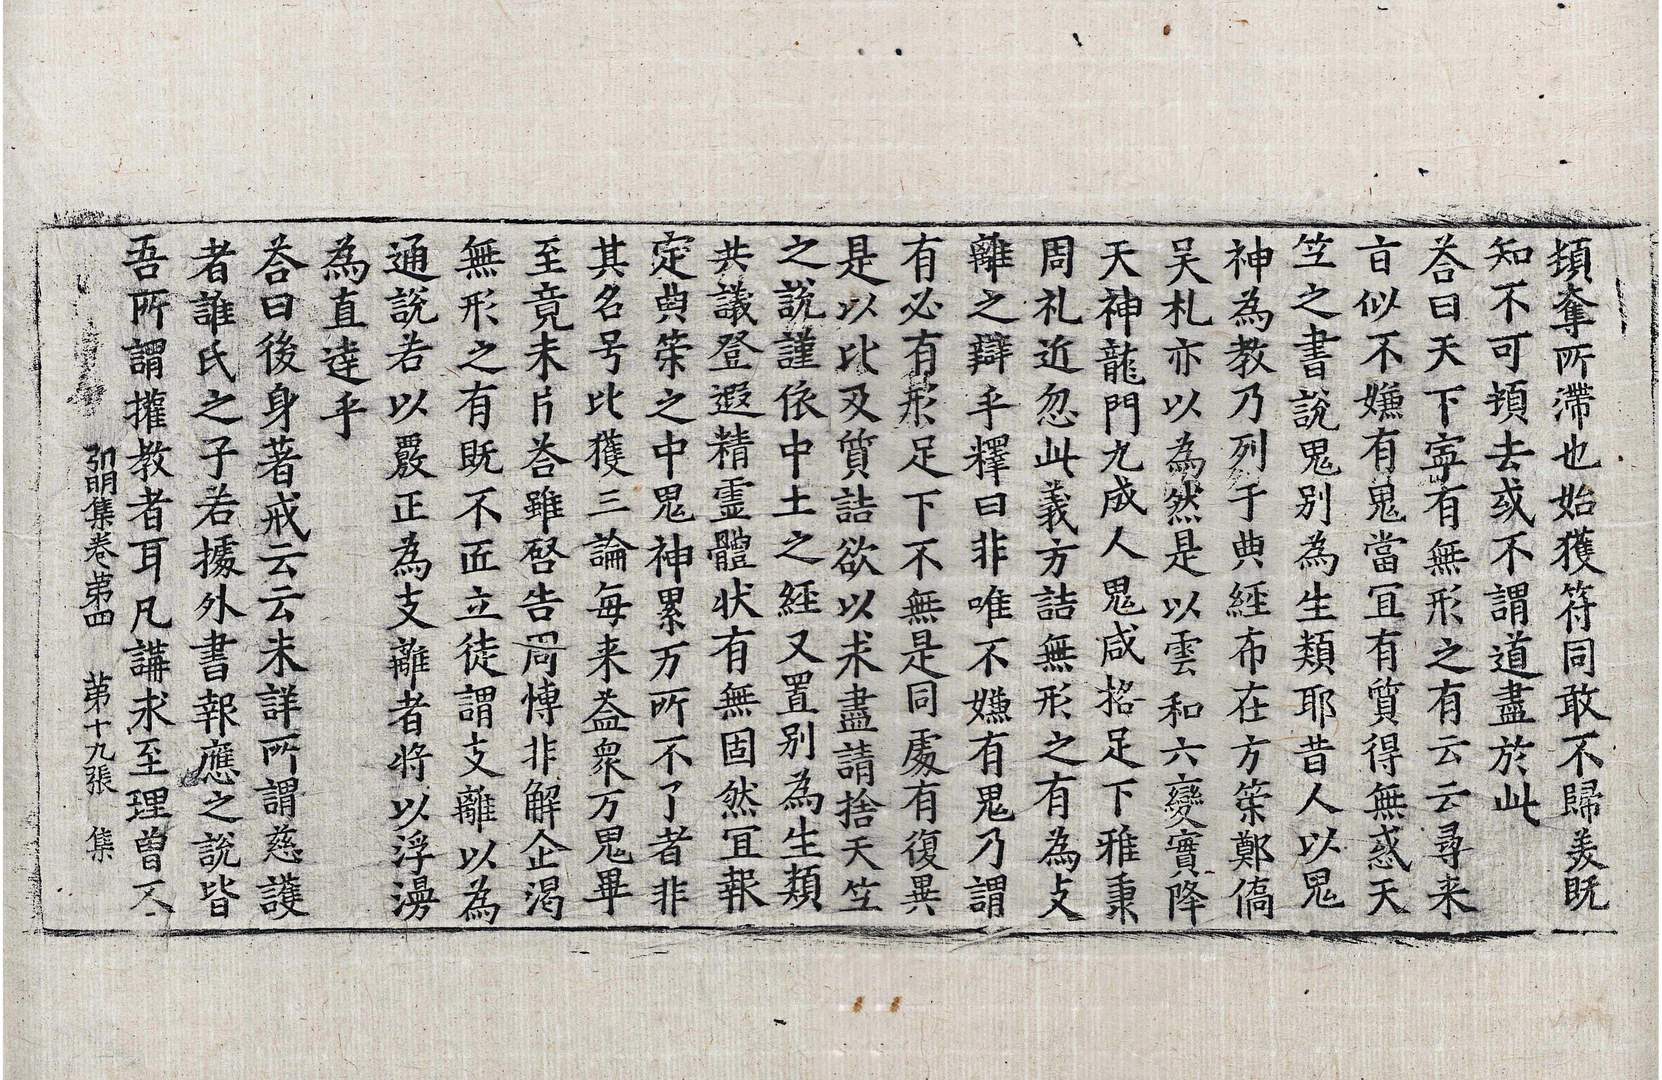 頓奪所滯也始獲符同敢不歸羡既
知不可頓去或不謂道盡於此
荅曰天下寧有無形之有云云尋来
旨似不嫌有鬼當冝有質得無惑天
竺之書說鬼別為生類耶昔人以鬼
神為教乃列于典經布在方䇿鄭僑
吴札亦以為然是以雲和六變實降
天神龍門九成人鬼咸挌足下雅秉
周礼近忽此義方詰無形之有為攴
離之辯乎釋曰非唯不嫌有鬼乃謂
有必有形足下不無是同處有復異
是以比及質詰欲以求盡請捨天竺
之說謹依中土之經又置別為生類
共議登遐精霊體狀有無固然冝報
定典䇿之中鬼神累万所不了者非
其名号比獲三論每来益衆万鬼畢
至竟未片荅雖啓告周慱非解企渴
無形之有既不匠立徒謂支離以為
通說若以覈正為支離者将以浮漫
為直達乎
荅曰後身著戒云云未詳所謂慈護
者誰氏之子若據外書報應之說皆
吾所謂權教者耳凡講求至理曾不
弘明集卷第四 第十九張 集